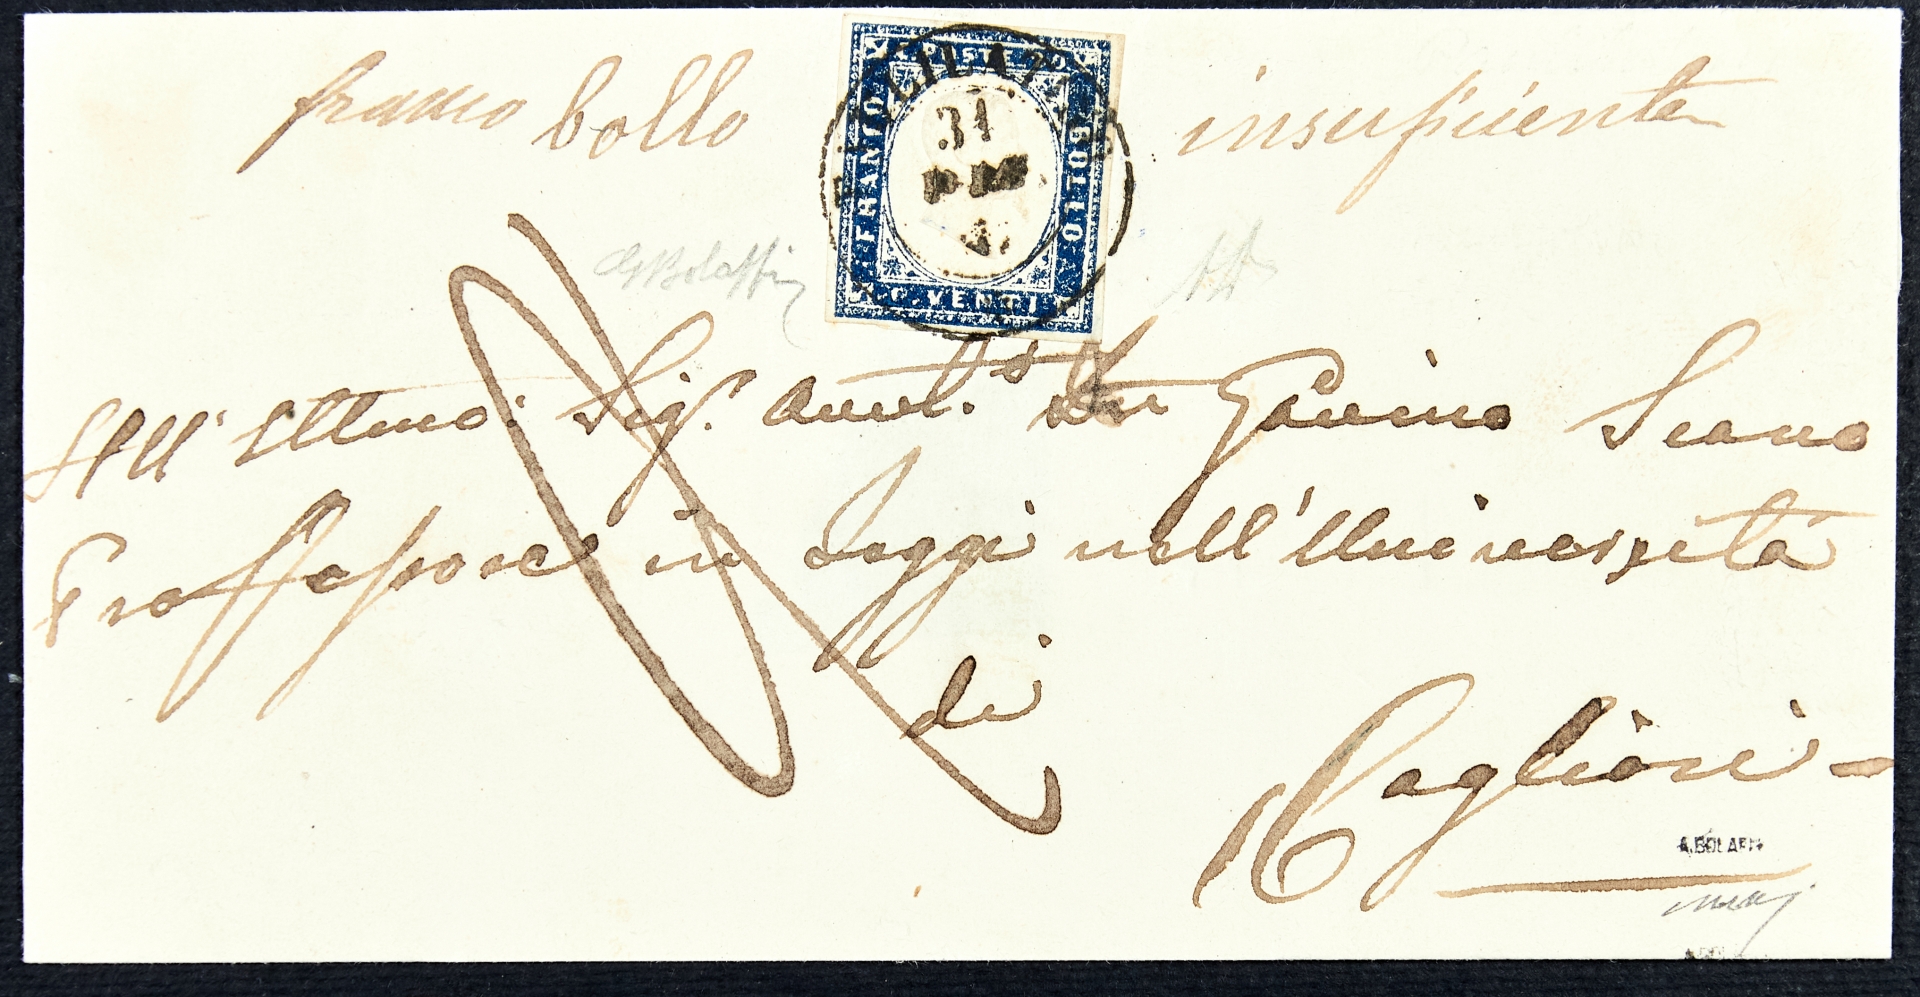 franco bollo insuficiente
POSTE
FRANCO
BOLLO
C. VENTI
31
DIC
G Bolaffi
All' Ill.mo Sig.r Avv.to Gavino Scano
Professore in Leggi nell' Università
di
Cagliari -
A. BOLAFFI